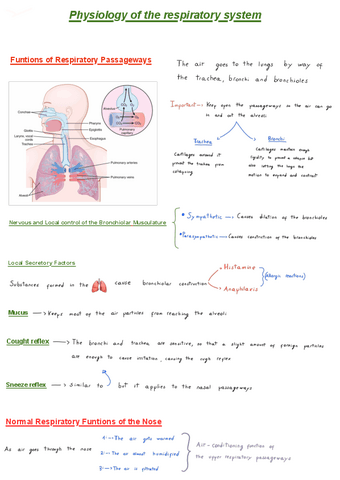 Physiology of the respiratory system
Funtions of Respiratory Passageways
The air goes to the lungs by way of
the trachea, bronchi and bronchioles
Important: Keep open the passageways so the air can go
in and out the alveoli
Trachea
Cartilages around it
prevent the trachea from
collapsing
Bronchi
Cartilages maintain
rigidity to prevent a collapse but
also letting the lungs the
motion to expand and contract
Conchae
Glottis
Larynx, vocal
cords
Trachea
Pharynx
Epiglottis
Esophagus
Pulmonary arteries
Pulmonary veins
Alveoli
Alveolus
CO₂
O₂
Pulmonary
capillary
Nervous and Local control of the Bronchiolar Musculature
Sympathetic → Causes dilation of the bronchioles
Parasympathetic → Causes constriction of the bronchioles
Local Secretory Factors
Substances formed in the cause bronchiolar constriction
Histamine
Anaphlaxis
(Allergic reactions)
Mucus → Keeps most of the air particles from reaching the alveoli
Cought reflex → The bronchi and trachea are sensitive, so that a slight amount of foreign particles
are enough to cause irritation, causing the cough reflex
Sneeze reflex → Similar to but it applies to the nasal passageways
Normal Respiratory Funtions of the Nose
As air goes through the nose
1: → The air gets warmed
2: → The air almost humidified
3: → The air is filtrated
Air-conditioning function of
the upper respiratory passageways